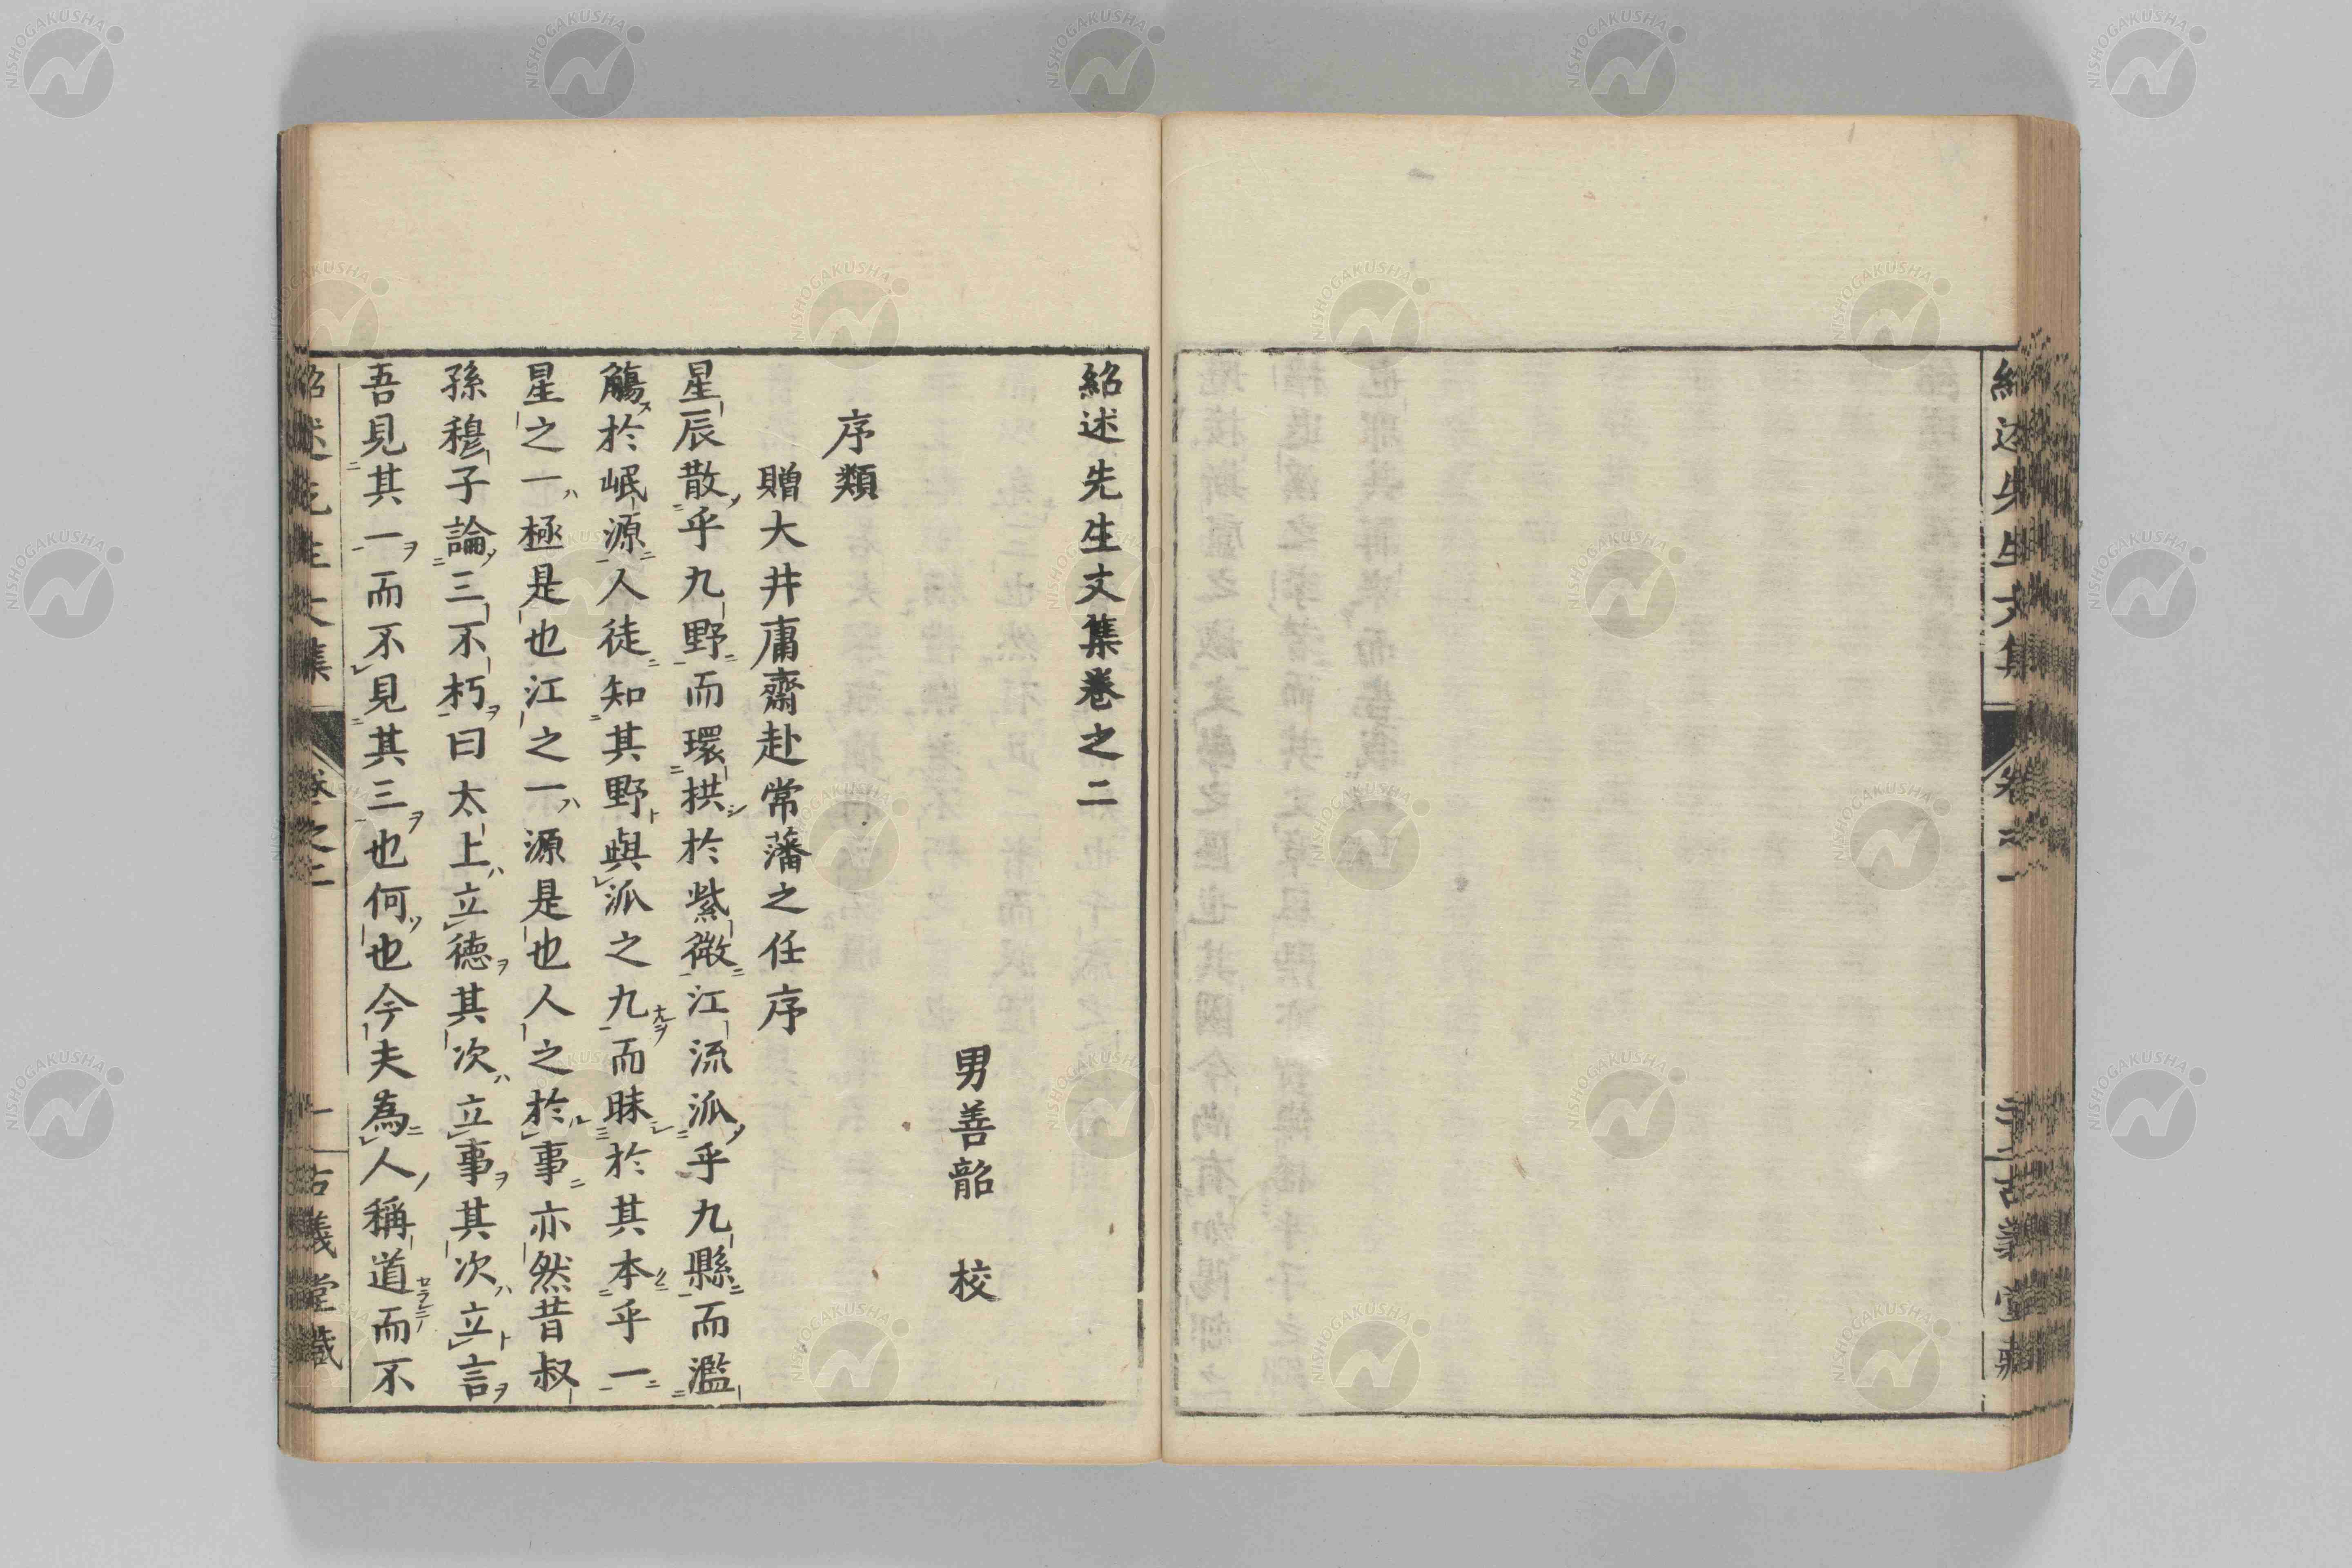 紹述先生文集卷之二
男善韶　校
序類
贈大井庸齋赴常藩之任序
星辰散乎九野而環拱於紫微江流派乎九縣而濫
觴於岷源人徒知其野與派之九而昧於其本乎一
星之一極是也江之一源是也人之於事亦然昔叔
孫穆子論三不朽曰太上立德其次立事其次立言
吾見其一而不見其三也何也今夫為人稱道而不
紹述先生文集　卷之二　一　古義堂藏
NISHOGAKUSHA